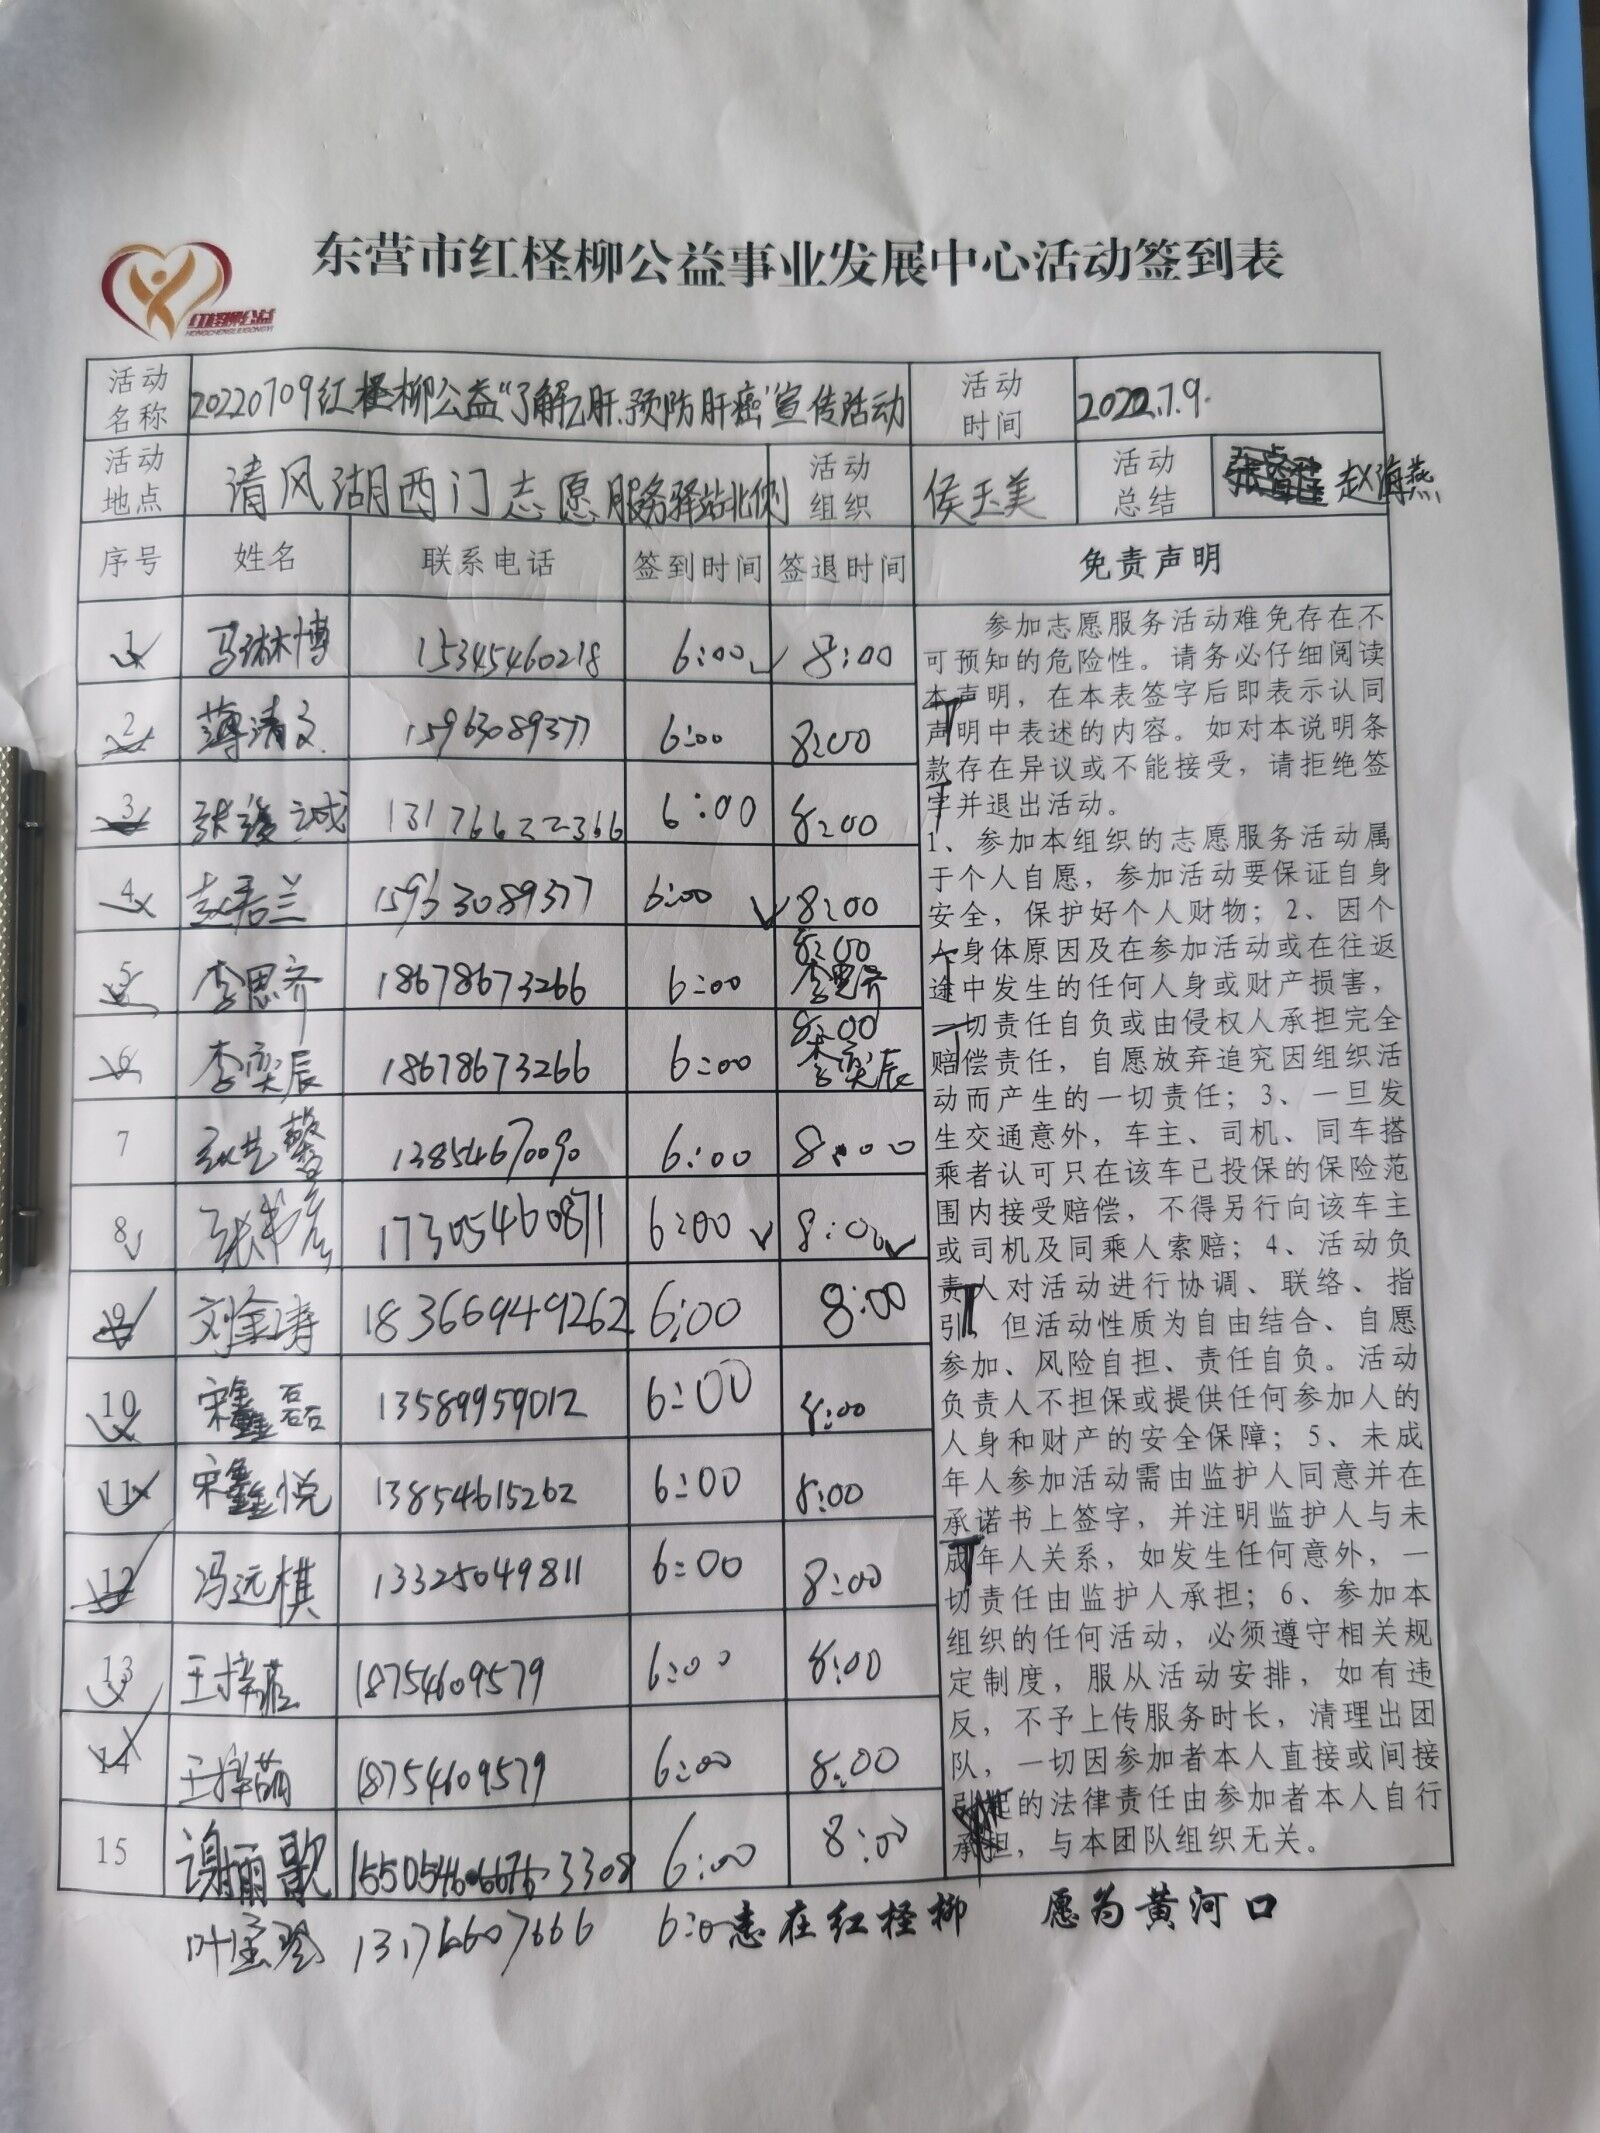 东营市红柽柳公益事业发展中心活动签到表
红柽柳公益
活动名称 20220709红柽柳公益“了解乙肝、预防肝癌”宣传活动 活动时间 2022.7.9.
活动地点 清风湖西门志愿服务驿站北侧 活动组织 侯玉美 活动总结 赵海燕
序号 姓名 联系电话 签到时间 签退时间 免责声明
1 马琳博 15345460218 6:00 8:00
2 薄清文 15963089377 6:00 8:00
3 诚 13176622366 6:00 8:00
4 赵君兰 15963089377 6:00 8:00
5 李思齐 18678673266 6:00 8:00 李思齐
6 李奕辰 18678673266 6:00 8:00 李奕辰
7 13854670090 6:00 8:00
8 17305460871 6:00 8:00
9 刘金涛 18366949262 6:00 8:00
10 宋鑫磊 13589959012 6:00 8:00
11 宋鑫悦 13854615262 6:00 8:00
12 冯远棋 13325049811 6:00 8:00
13 王梓 18754609579 6:00 8:00
14 王梓萌 18754609579 6:00 8:00
15 谢丽歌 6:00 8:00
叶宝玲 13176607666 6:0
参加志愿服务活动难免存在不
可预知的危险性。请务必仔细阅读
本声明，在本表签字后即表示认同
声明中表述的内容。如对本说明条
款存在异议或不能接受，请拒绝签
字并退出活动。
1、参加本组织的志愿服务活动属
于个人自愿，参加活动要保证自身
安全，保护好个人财物；2、因个
人身体原因及在参加活动或在往返
途中发生的任何人身或财产损害，
一切责任自负或由侵权人承担完全
赔偿责任，自愿放弃追究因组织活
动而产生的一切责任；3、一旦发
生交通意外，车主、司机、同车搭
乘者认可只在该车已投保的保险范
围内接受赔偿，不得另行向该车主
或司机及同乘人索赔；4、活动负
责人对活动进行协调、联络、指
引，但活动性质为自由结合、自愿
参加、风险自担、责任自负。活动
负责人不担保或提供任何参加人的
人身和财产的安全保障；5、未成
年人参加活动需由监护人同意并在
承诺书上签字，并注明监护人与未
成年人关系，如发生任何意外，一
切责任由监护人承担；6、参加本
组织的任何活动，必须遵守相关规
定制度，服从活动安排，如有违
反，不予上传服务时长，清理出团
队，一切因参加者本人直接或间接
引起的法律责任由参加者本人自行
承担，与本团队组织无关。
志在红柽柳 愿为黄河口